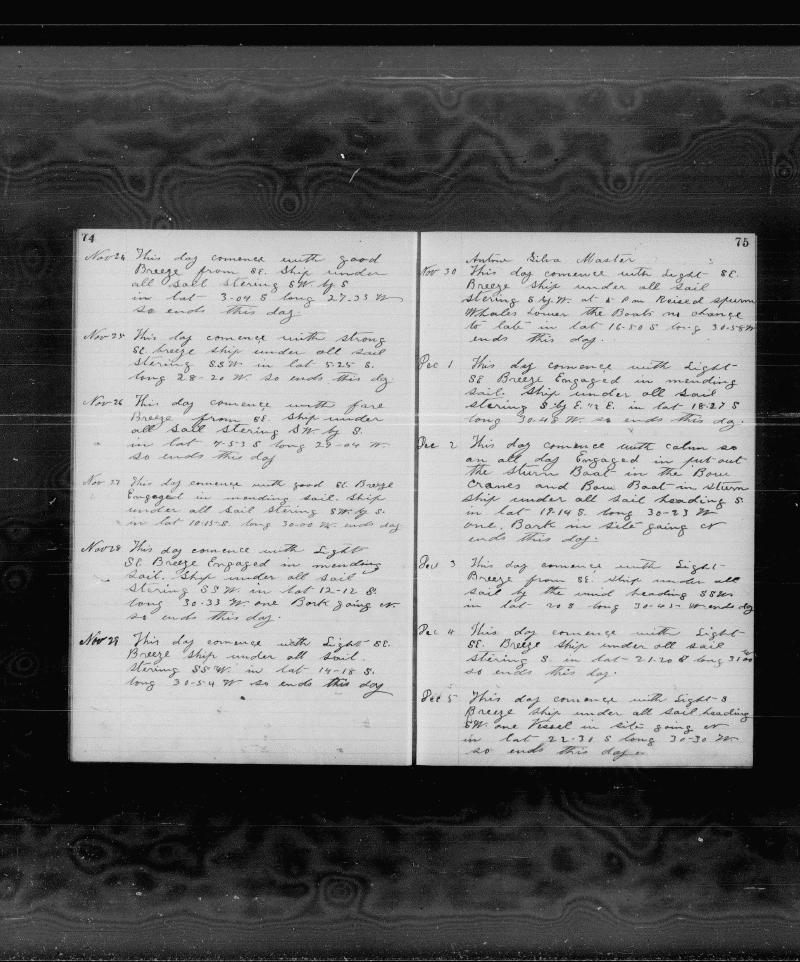 74
Nov 24 This day comence with good
Breeze from SE. Ship under
all Sail Stering SW. by S
in lat 3-04 S long 27-33 W
so ends this day
Nov 25 This day comence with strong
SE. breeze ship under all sail
Stering SSW. in lat 5-25 S.
long 28-20 W. so ends this dy
Nov 26 This day comence with fare
Breeze from SE. Ship under
all Sail Stering SW. by S.
in lat 7-53 S long 29-04 W.
so ends this day
Nov 27 This day comence with good SE. Breeze
Engaged in mending sail. Ship
under all sail Stering SW. by S.
in lat 10-15 S. long 30-00 W. ends day
Nov 28 This day comence with Light
SE Breeze Engaged in mending
Sail. Ship under all sail
Stering SSW. in lat 12-12 S.
long 30-33 W. one Bark going N.
so ends this day.
Nov 29 This day comence with Light SE.
Breeze ship under all sail.
Stering SSW. in lat 14-18 S.
long 30-54 W so ends this day
75
Antone Silva Master
Nov 30 This day comence with Light SE.
Breeze Ship under all sail
Stering S by W. at 5 P m Reised Spurm
Whales Lower the Boats no change
to late in lat 16-50 S long 30-58 W
ends this day.
Dec 1 This day comence with Light
SE Breeze Engaged in mending
sail. Ship under all sail
Stering S by E. 1/2 E. in lat 18-27 S
long 30-48 W. so ends this day.
Dec 2 This day comence with calm so
an all day Engaged in put out
the Sturn Boat in the Bow
Cranes and Bow Boat in Sturn
Ship under all sail heading S.
in lat 19-14 S. long 30-23 W
one. Bark in site going N
ends this day.
Dec 3 This day comence with Light
Breeze from SE. Ship under all
sail by the wind heading SSW
in lat 20 S long 30-43 W ends dy
Dec 4 This day comence with Light
SE. Breeze Ship under all sail
Stering S. in lat 21-20 S long 31 00 W
so ends this day.
Dec 5 This day comence with Light S
Breeze Ship under all sail heading
SW. one Vessel in site going N
in lat 22-30 S long 30-30 W
so ends this day